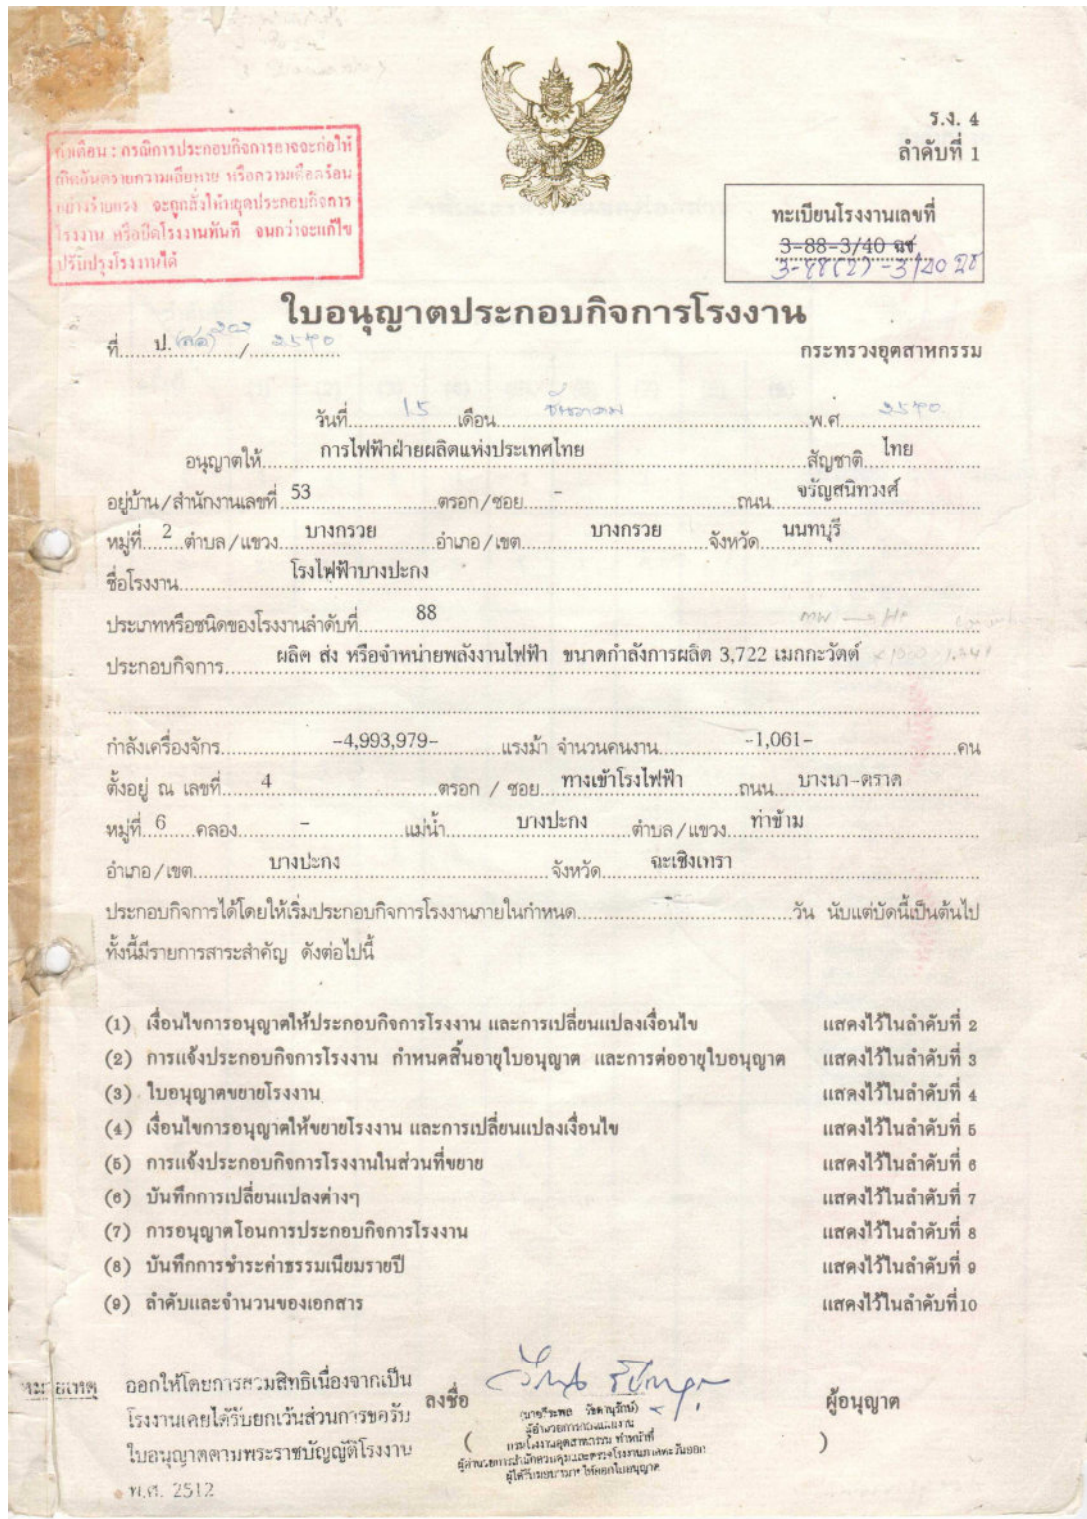 ร.ง. 4
ลำดับที่ 1
คำเตือน : กรณีการประกอบกิจการอาจจะก่อให้
เกิดอันตรายความเสียหาย หรือความเดือดร้อน
อย่างร้ายแรง จะถูกสั่งให้หยุดประกอบกิจการ
โรงงาน หรือปิดโรงงานทันที จนกว่าจะแก้ไข
ปรับปรุงโรงงานได้
ทะเบียนโรงงานเลขที่
3-88-3/40 ฉช
3-88(2)-3/40 ฉช
ใบอนุญาตประกอบกิจการโรงงาน
ที่ ป. / 2540
กระทรวงอุตสาหกรรม
วันที่ 15 เดือน ธันวาคม พ.ศ. 2540
อนุญาตให้ การไฟฟ้าฝ่ายผลิตแห่งประเทศไทย สัญชาติ ไทย
อยู่บ้าน/สำนักงานเลขที่ 53 ตรอก/ซอย - ถนน จรัญสนิทวงศ์
หมู่ที่ 2 ตำบล/แขวง บางกรวย อำเภอ/เขต บางกรวย จังหวัด นนทบุรี
ชื่อโรงงาน โรงไฟฟ้าบางปะกง
ประเภทหรือชนิดของโรงงานลำดับที่ 88
MW → HP
ประกอบกิจการ ผลิต ส่ง หรือจำหน่ายพลังงานไฟฟ้า ขนาดกำลังการผลิต 3,722 เมกกะวัตต์
กำลังเครื่องจักร -4,993,979- แรงม้า จำนวนคนงาน -1,061- คน
ตั้งอยู่ ณ เลขที่ 4 ตรอก / ซอย ทางเข้าโรงไฟฟ้า ถนน บางนา-ตราด
หมู่ที่ 6 คลอง - แม่น้ำ บางปะกง ตำบล/แขวง ท่าข้าม
อำเภอ/เขต บางปะกง จังหวัด ฉะเชิงเทรา
ประกอบกิจการได้โดยให้เริ่มประกอบกิจการโรงงานภายในกำหนด วัน นับแต่บัดนี้เป็นต้นไป
ทั้งนี้มีรายการสาระสำคัญ ดังต่อไปนี้
(1) เงื่อนไขการอนุญาตให้ประกอบกิจการโรงงาน และการเปลี่ยนแปลงเงื่อนไข แสดงไว้ในลำดับที่ 2
(2) การแจ้งประกอบกิจการโรงงาน กำหนดสิ้นอายุใบอนุญาต และการต่ออายุใบอนุญาต แสดงไว้ในลำดับที่ 3
(3) ใบอนุญาตขยายโรงงาน แสดงไว้ในลำดับที่ 4
(4) เงื่อนไขการอนุญาตให้ขยายโรงงาน และการเปลี่ยนแปลงเงื่อนไข แสดงไว้ในลำดับที่ 5
(5) การแจ้งประกอบกิจการโรงงานในส่วนที่ขยาย แสดงไว้ในลำดับที่ 6
(6) บันทึกการเปลี่ยนแปลงต่างๆ แสดงไว้ในลำดับที่ 7
(7) การอนุญาตโอนการประกอบกิจการโรงงาน แสดงไว้ในลำดับที่ 8
(8) บันทึกการชำระค่าธรรมเนียมรายปี แสดงไว้ในลำดับที่ 9
(9) ลำดับและจำนวนของเอกสาร แสดงไว้ในลำดับที่10
หมายเหตุ ออกให้โดยการสวมสิทธิเนื่องจากเป็น
โรงงานเคยได้รับยกเว้นส่วนการขอรับ
ใบอนุญาตตามพระราชบัญญัติโรงงาน
พ.ศ. 2512
ลงชื่อ ผู้อนุญาต
(นายวีระพล วัชตานุรักษ์)
ผู้อำนวยการกองแผนงาน
กรมโรงงานอุตสาหกรรม ทำหน้าที่
ผู้อำนวยการสำนักควบคุมและตรวจโรงงานภาคตะวันออก
ผู้ได้รับมอบหมายให้ออกใบอนุญาต